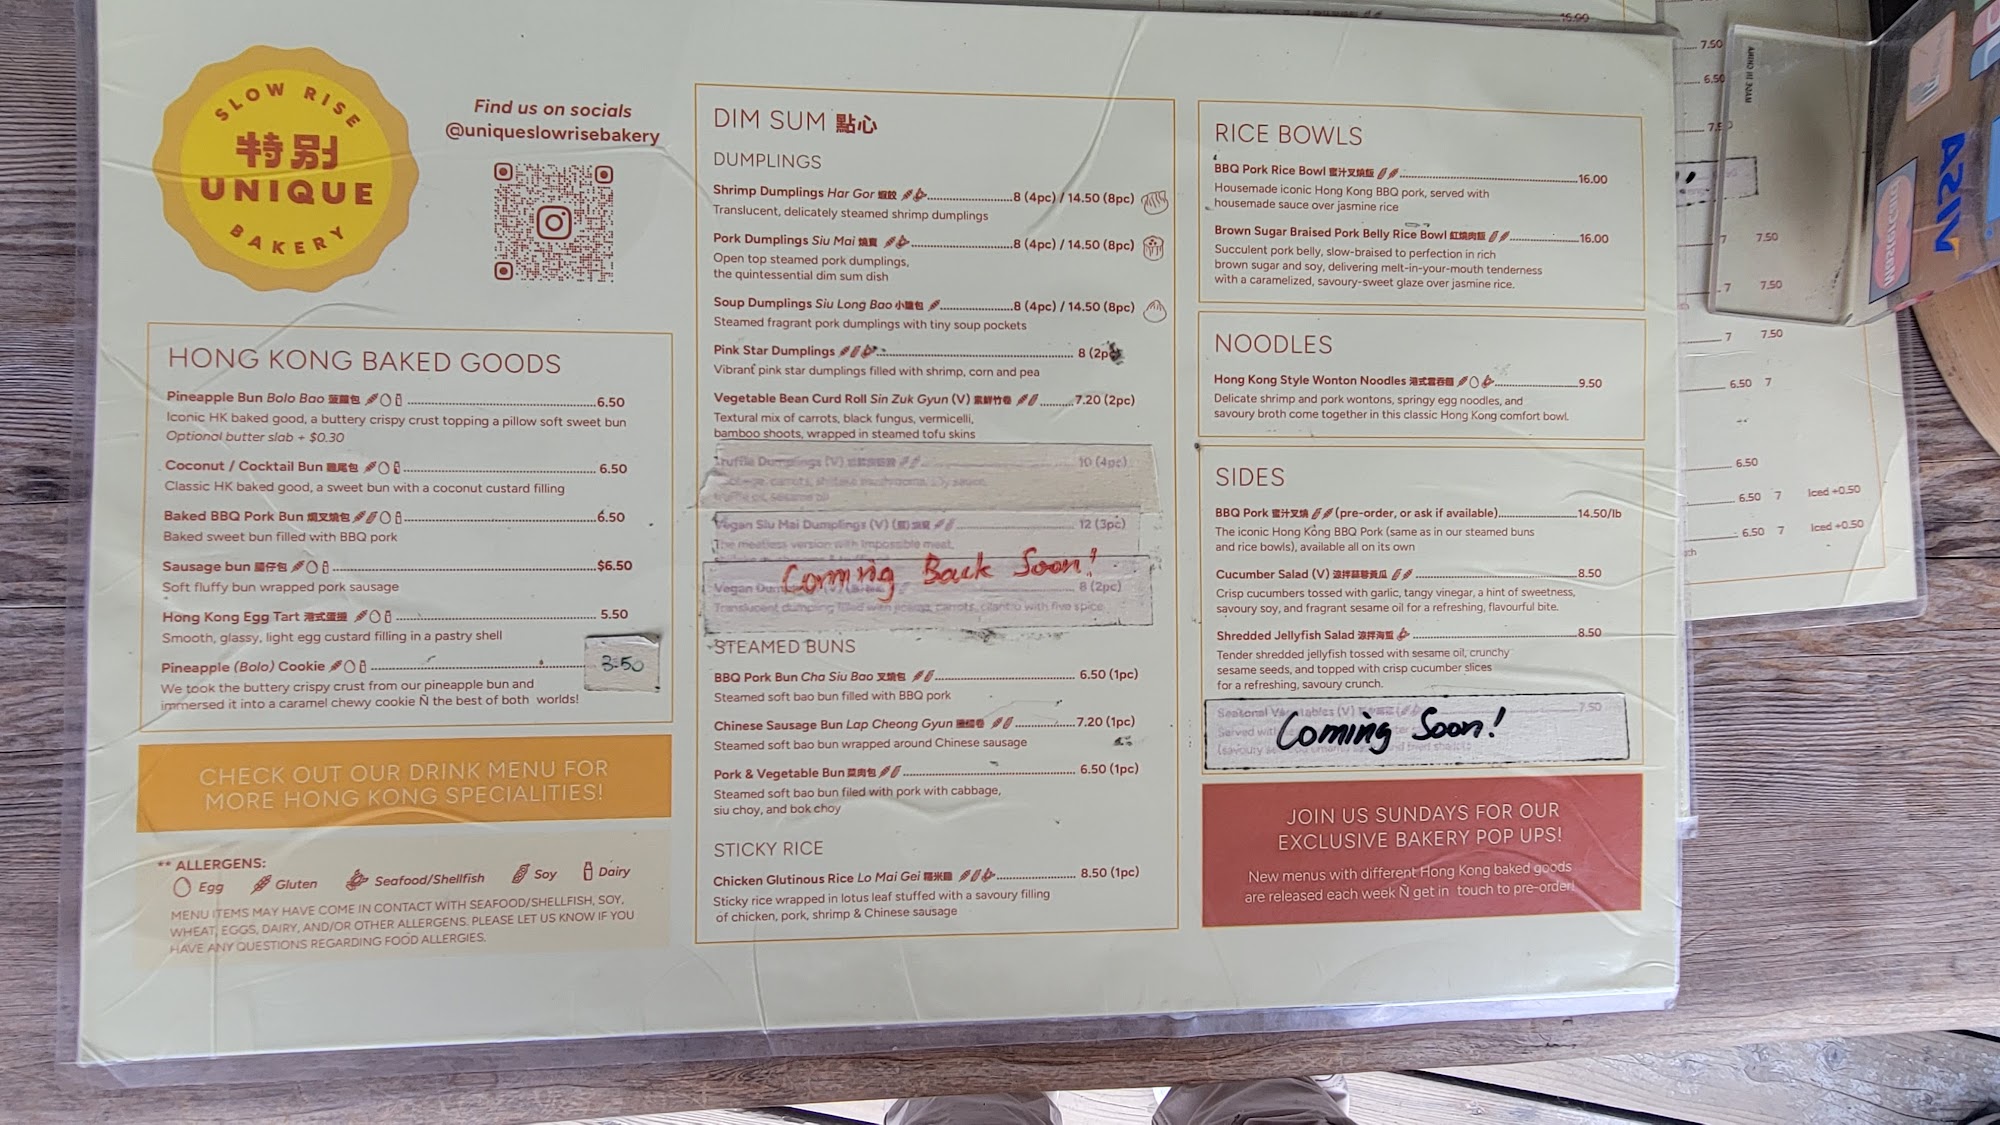 SLOW RISE
特别
UNIQUE
BAKERY
Find us on socials
@uniqueslowrisebakery
HONG KONG BAKED GOODS
Pineapple Bun Bolo Bao 菠蘿包 6.50
Iconic HK baked good, a buttery crispy crust topping a pillow soft sweet bun
Optional butter slab + $0.30
Coconut / Cocktail Bun 雞尾包 6.50
Classic HK baked good, a sweet bun with a coconut custard filling
Baked BBQ Pork Bun 焗叉燒包 6.50
Baked sweet bun filled with BBQ pork
Sausage bun 腸仔包 $6.50
Soft fluffy bun wrapped pork sausage
Hong Kong Egg Tart 港式蛋撻 5.50
Smooth, glassy, light egg custard filling in a pastry shell
Pineapple (Bolo) Cookie 3.50
We took the buttery crispy crust from our pineapple bun and
immersed it into a caramel chewy cookie Ñ the best of both worlds!
CHECK OUT OUR DRINK MENU FOR
MORE HONG KONG SPECIALITIES!
** ALLERGENS:
Egg Gluten Seafood/Shellfish Soy Dairy
MENU ITEMS MAY HAVE COME IN CONTACT WITH SEAFOOD/SHELLFISH, SOY,
WHEAT, EGGS, DAIRY, AND/OR OTHER ALLERGENS. PLEASE LET US KNOW IF YOU
HAVE ANY QUESTIONS REGARDING FOOD ALLERGIES.
DIM SUM 點心
DUMPLINGS
Shrimp Dumplings Har Gor 蝦餃 8 (4pc) / 14.50 (8pc)
Translucent, delicately steamed shrimp dumplings
Pork Dumplings Siu Mai 燒賣 8 (4pc) / 14.50 (8pc)
Open top steamed pork dumplings,
the quintessential dim sum dish
Soup Dumplings Siu Long Bao 小籠包 8 (4pc) / 14.50 (8pc)
Steamed fragrant pork dumplings with tiny soup pockets
Pink Star Dumplings 8 (2pc
Vibrant pink star dumplings filled with shrimp, corn and pea
Vegetable Bean Curd Roll Sin Zuk Gyun (V) 素鮮竹卷 7.20 (2pc)
Textural mix of carrots, black fungus, vermicelli,
bamboo shoots, wrapped in steamed tofu skins
Truffle Dumplings (V) 10 (4pc)
carrots, shiitake mushrooms, soy sauce,
truffle oil, sesame oil
Vegan Siu Mai Dumplings (V) 12 (3pc)
The meatless version with impossible meat,
Coming Back Soon!
Vegan 8 (2pc)
Translucent dumpling filled with carrots, cilantro with five spice
STEAMED BUNS
BBQ Pork Bun Cha Siu Bao 叉燒包 6.50 (1pc)
Steamed soft bao bun filled with BBQ pork
Chinese Sausage Bun Lap Cheong Gyun 臘腸卷 7.20 (1pc)
Steamed soft bao bun wrapped around Chinese sausage
Pork & Vegetable Bun 菜肉包 6.50 (1pc)
Steamed soft bao bun filed with pork with cabbage,
siu choy, and bok choy
STICKY RICE
Chicken Glutinous Rice Lo Mai Gei 糯米雞 8.50 (1pc)
Sticky rice wrapped in lotus leaf stuffed with a savoury filling
of chicken, pork, shrimp & Chinese sausage
RICE BOWLS
BBQ Pork Rice Bowl 蜜汁叉燒飯 16.00
Housemade iconic Hong Kong BBQ pork, served with
housemade sauce over jasmine rice
Brown Sugar Braised Pork Belly Rice Bowl 紅燒肉飯 16.00
Succulent pork belly, slow-braised to perfection in rich
brown sugar and soy, delivering melt-in-your-mouth tenderness
with a caramelized, savoury-sweet glaze over jasmine rice.
NOODLES
Hong Kong Style Wonton Noodles 港式雲吞麵 9.50
Delicate shrimp and pork wontons, springy egg noodles, and
savoury broth come together in this classic Hong Kong comfort bowl.
SIDES
BBQ Pork 蜜汁叉燒 (pre-order, or ask if available) 14.50/lb
The iconic Hong Kong BBQ Pork (same as in our steamed buns
and rice bowls), available all on its own
Cucumber Salad (V) 涼拌蒜蓉黃瓜 8.50
Crisp cucumbers tossed with garlic, tangy vinegar, a hint of sweetness,
savoury soy, and fragrant sesame oil for a refreshing, flavourful bite.
Shredded Jellyfish Salad 涼拌海蜇 8.50
Tender shredded jellyfish tossed with sesame oil, crunchy
sesame seeds, and topped with crisp cucumber slices
for a refreshing, savoury crunch.
Seasonal Vegetables (V) 7.50
Served with
Coming Soon!
JOIN US SUNDAYS FOR OUR
EXCLUSIVE BAKERY POP UPS!
New menus with different Hong Kong baked goods
are released each week Ñ get in touch to pre-order!
16.00
7.50
6.50
7.50
7 7.50
7 7.50
7 7.50
6.50 7
6.50
6.50 7 Iced +0.50
6.50 7 Iced +0.50
VISA